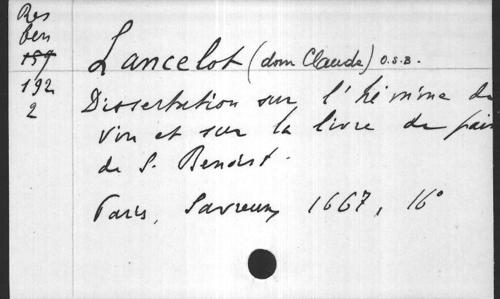 Res
ben
159
192
2
Lancelot (dom Claude) O.S.B.
Dissertation sur l'hémine de
vin et sur la livre de pain
de S. Benoist.
Paris, Savreux, 1667, 16°